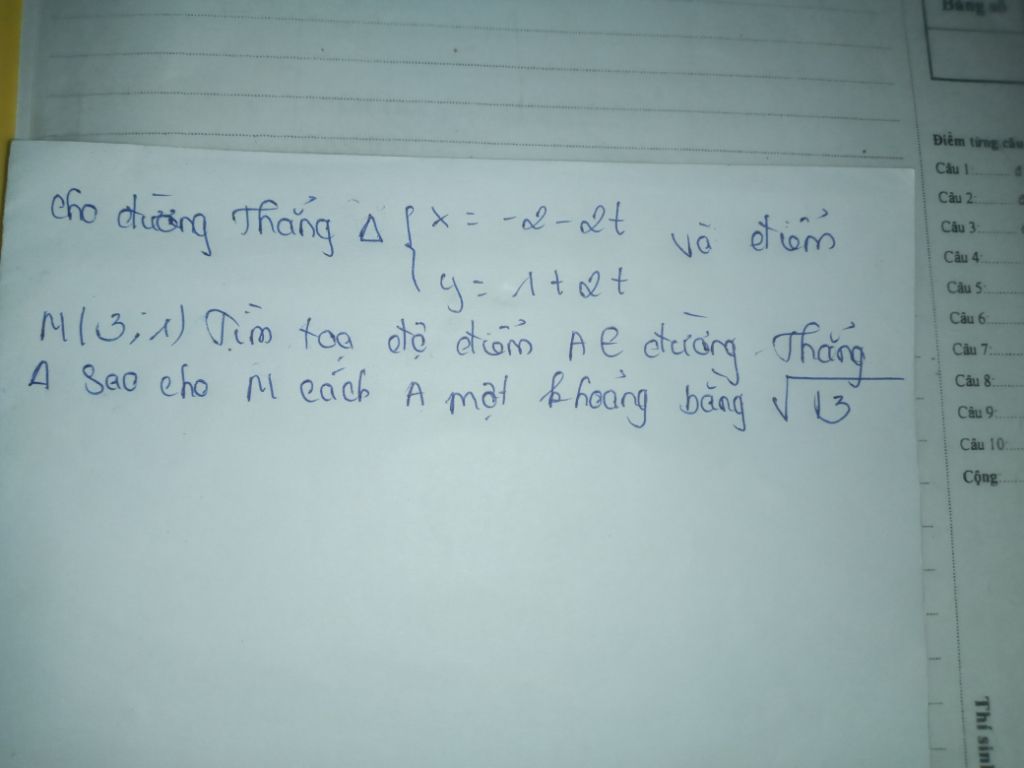 Bảng số
Điểm từng câu
Câu 1:
Câu 2:
Câu 3:
Câu 4:
Câu 5:
Câu 6:
Câu 7:
Câu 8:
Câu 9:
Câu 10:
Cộng:
cho đường thẳng Δ { x = -2 - 2t và điểm
y = 1 + 2t
M(3;1) Tìm toạ độ điểm A ∈ đường thẳng
Δ sao cho M cách A một khoảng bằng √13
Thí sinh